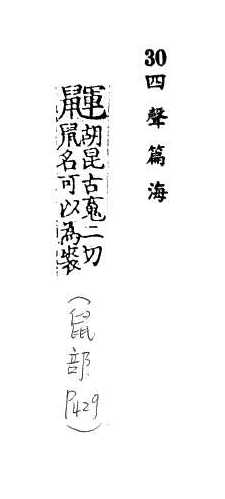 30 四聲篇海
鼲 胡昆古䰟二切
鼠名可以為裘
（鼠部 P429）